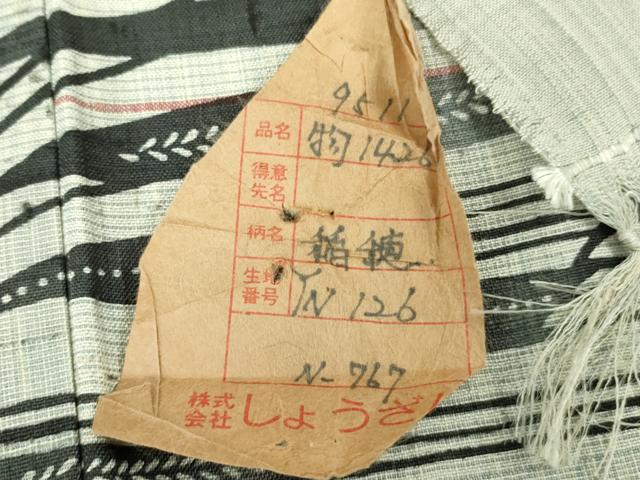 9511
品名 物1426
得意先名
柄名 稲穂
生地番号 YN 126
N-767
株式会社 しょうざ